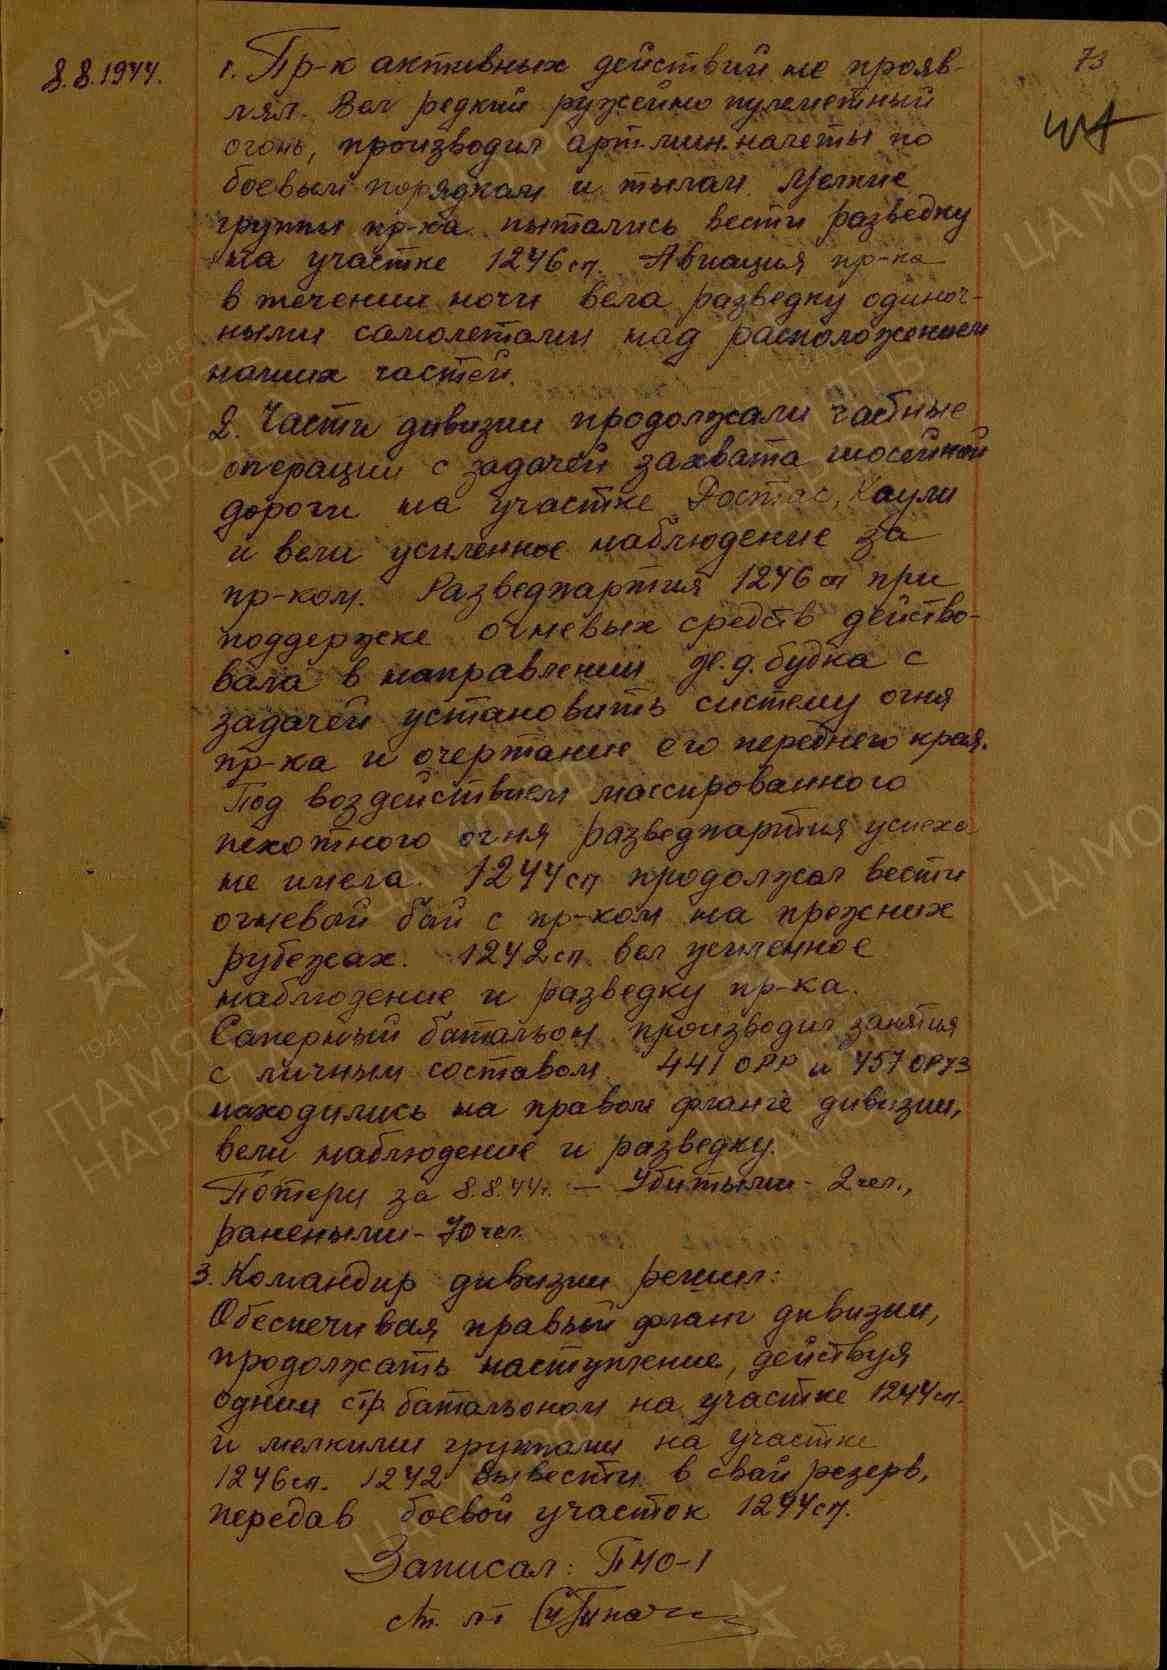 8.8.1944.
73
1. Пр-к активных действий не прояв-
лял. Вел редкий ружейно пулеметный
огонь, производил арт.-мин. налеты по
боевым порядкам и тылам. Мелкие
группы пр-ка пытались вести разведку
на участке 1246 сп. Авиация пр-ка
в течении ночи вела разведку одиноч-
ными самолетами над расположением
наших частей.
2. Части дивизии продолжали частные
операции с задачей захвата шосейной
дороги на участке Ростас, Каули
и вели усиленное наблюдение за
пр-ком. Разведпартия 1246 сп при
поддержке огневых средств действо-
вала в направлении ж.д. будка с
задачей установить систему огня
пр-ка и очертание его переднего края.
Под воздействием массированного
пехотного огня разведпартия успеха
не имела. 1244 сп продолжал вести
огневой бой с пр-ком на прежних
рубежах. 1242 сп вел усиленное
наблюдение и разведку пр-ка.
Саперный батальон производил занятия
с личным составом. 441 ОРР и 457 ОРУЗ
находились на правом фланге дивизии,
вели наблюдение и разведку.
Потери за 8.8.44 г. – Убитыми - 2 чел.,
ранеными - 70 чел.
3. Командир дивизии решил:
Обеспечивая правый фланг дивизии,
продолжать наступление, действуя
одним стр. батальоном на участке 1244 сп.
и мелкими группами на участке
1246 сп. 1242 вывести в свой резерв,
передав боевой участок 1244 сп.
Записал: ПНО-1
ст. л-т
ЦА МО РФ
ПАМЯТЬ
НАРОДА
1941-1945